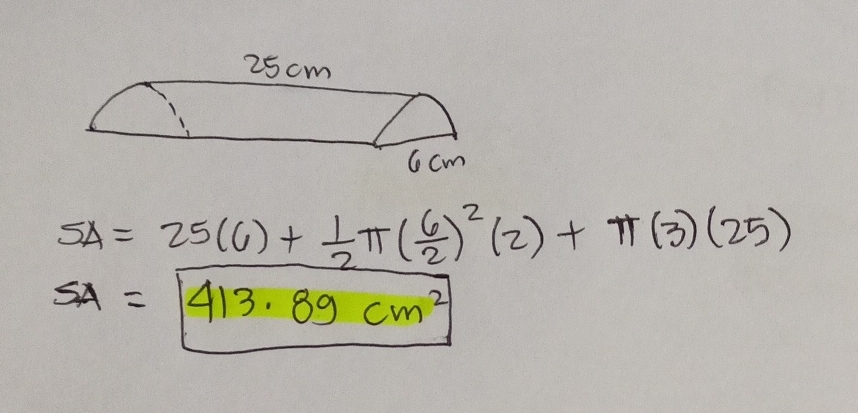 25cm
6cm
SA = 25(6) + 1/2 π (6/2)² (2) + π (3) (25)
SA = 413.89 cm²